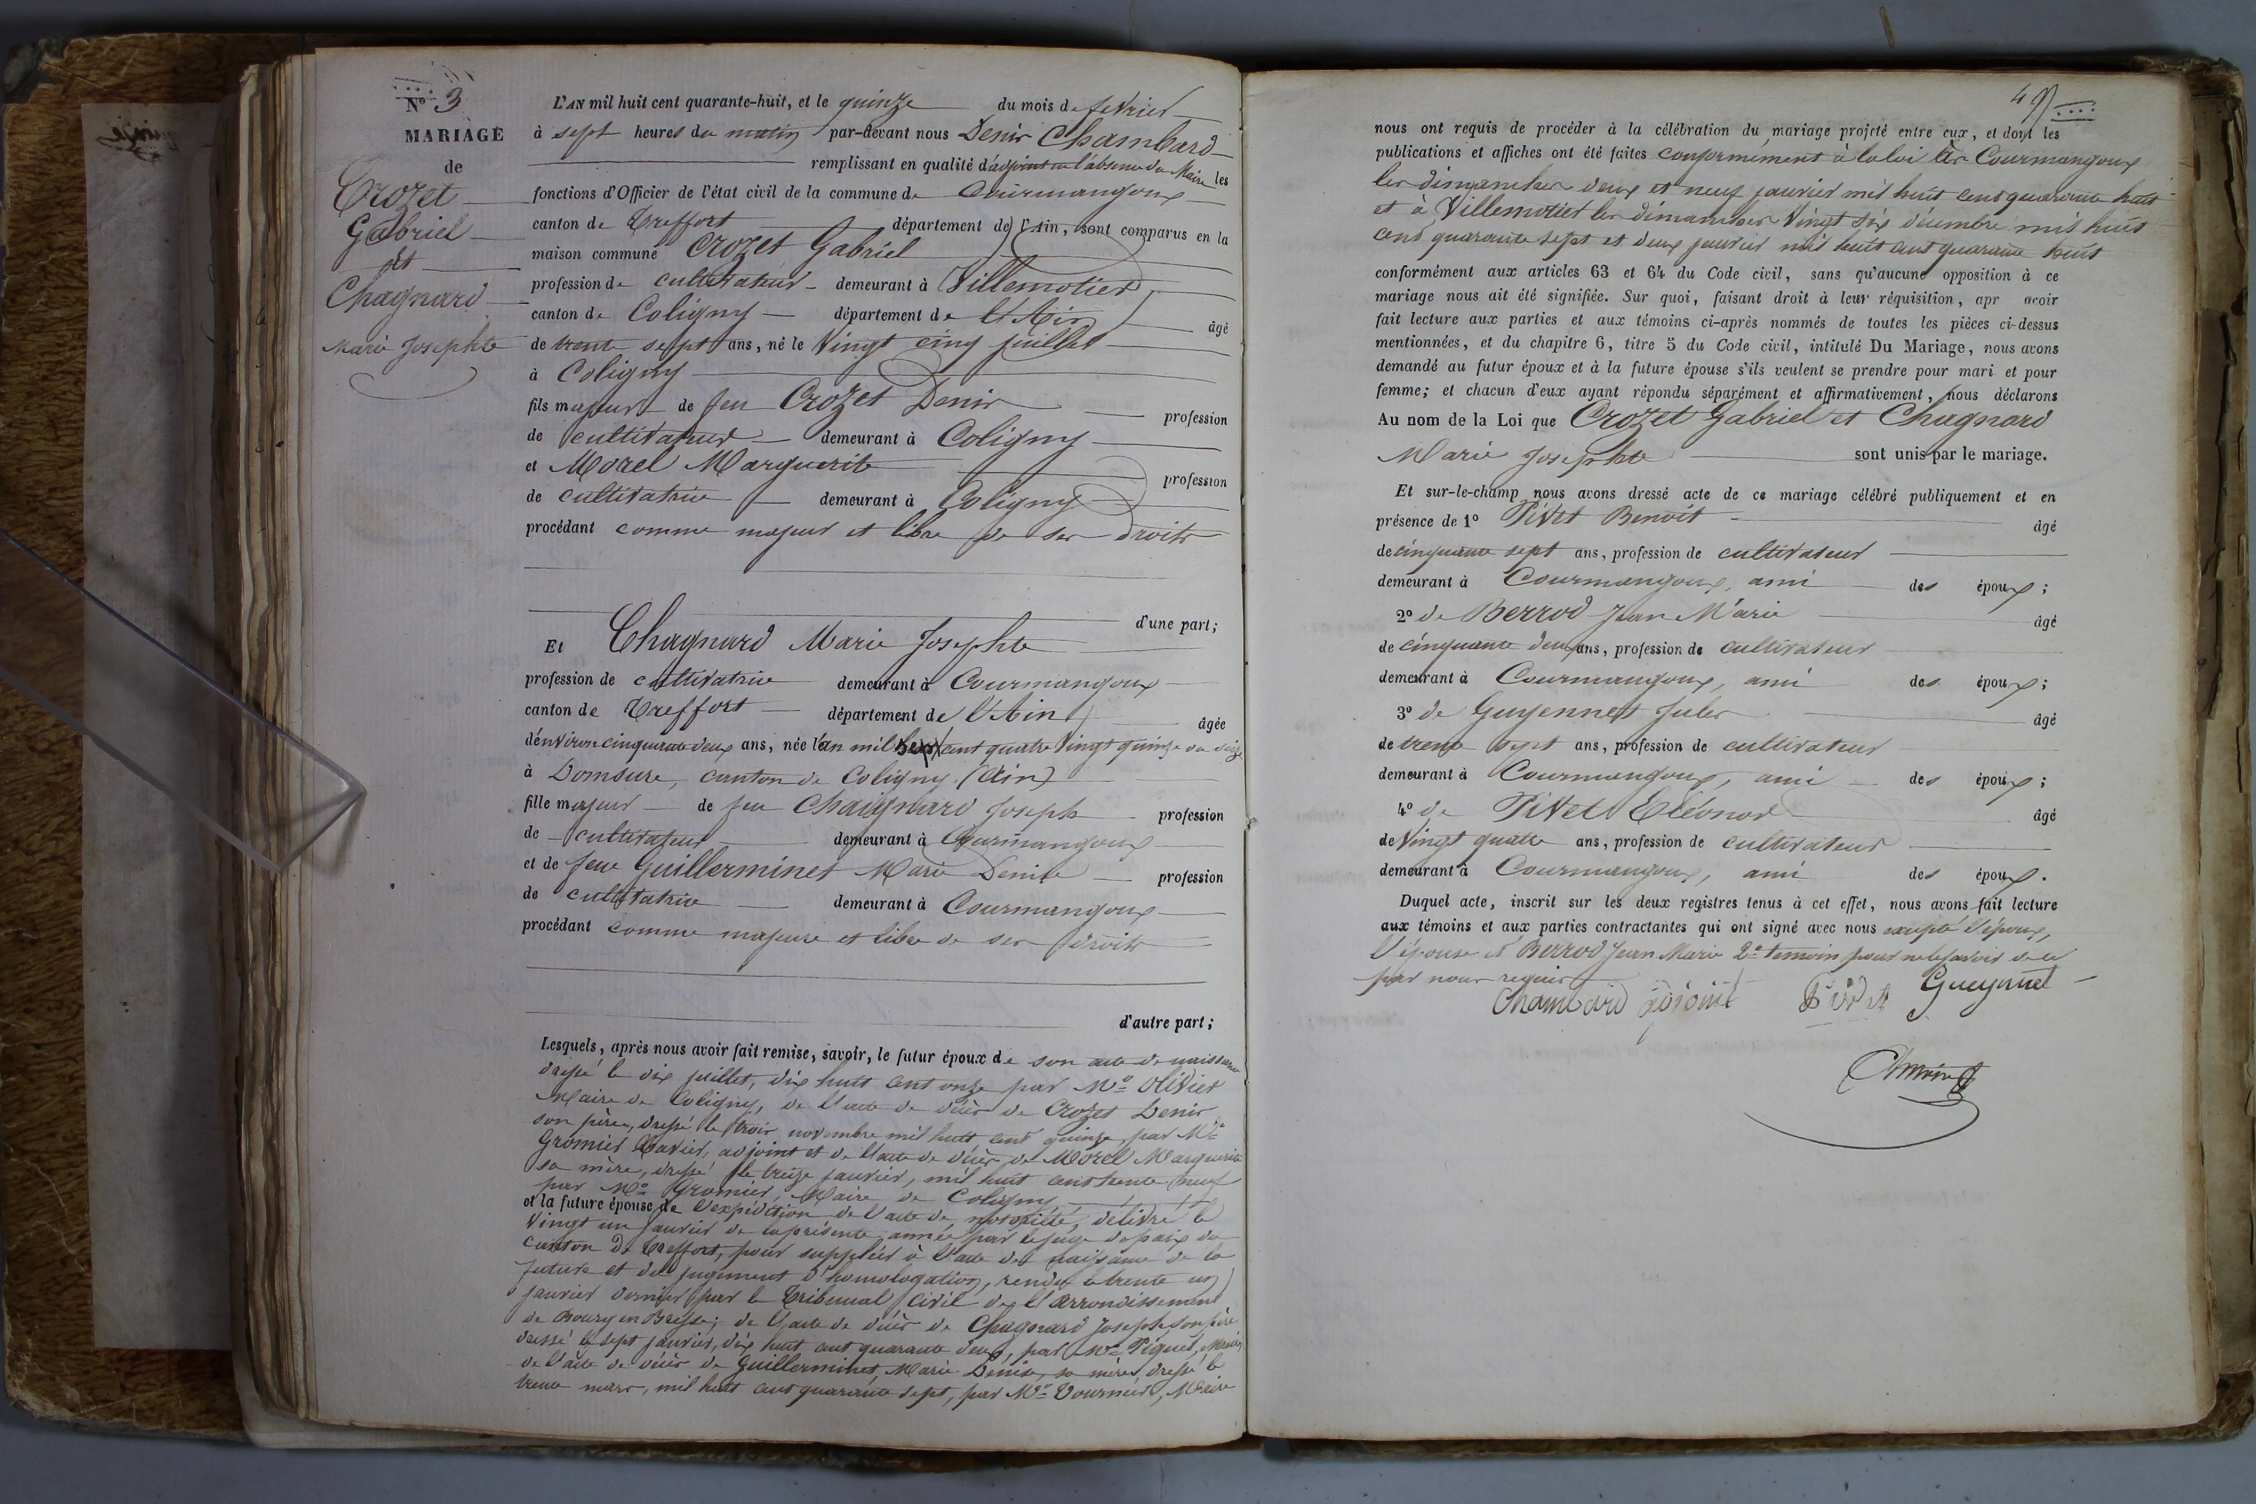 N° 3
MARIAGE
de
Crozet
Gabriel
et
Chagnard
Marie Josephte
L'AN mil huit cent quarante-huit, et le quinze du mois de février
à sept heures du matin par-devant nous Denis Chambard
remplissant en qualité d'adjoint en l'absence du Maire les
fonctions d'Officier de l'état civil de la commune de Courmangoux
canton de Treffort département de l'Ain, sont comparus en la
maison commune Crozet Gabriel
profession de cultivateur demeurant à Villemotier
canton de Coligny département de l'Ain âgé
de trente sept ans, né le Vingt cinq juillet
à Coligny
fils majeur de feu Crozet Denis profession
de cultivateur demeurant à Coligny
et Morel Marguerite profession
de cultivatrice demeurant à Coligny
procédant comme majeur et libre de ses droits
d'une part;
Et Chagnard Marie Josephte
profession de cultivatrice demeurant à Courmangoux
canton de Treffort département de l'Ain âgée
d'environ cinquante deux ans, née l'an mil sept cent quatre Vingt quinze ou seize
à Domsure, canton de Coligny (Ain)
fille majeur de feu Chaignard Joseph profession
de cultivateur demeurant à Courmangoux
et de feue Guillerminet Marie Denise profession
de cultivatrice demeurant à Courmangoux
procédant comme majeure et libre de ses droits
d'autre part;
Lesquels, après nous avoir fait remise, savoir, le futur époux de son acte de naissance
dressé le dix juillet, dix huit cent onze par Mr Olivier
Maire de Coligny, de l'acte de décès de Crozet Denis
son père, dressé le trois novembre mil huit cent quinze, par Mr
Gromier Xavier, adjoint et de l'acte de décès de Morel Marguerite
sa mère, dressé le treize janvier, mil huit cent trente neuf
par Mr Gromier, Maire de Coligny
et la future épouse de l'expédition de l'acte de notoriété, délivré le
Vingt un janvier de la présente année par le juge de paix du
canton de Treffort, pour suppléer à l'acte de naissance de la
future et du jugement d'homologation, rendu le trente un
janvier dernier par le Tribunal civil de l'arrondissement
de Bourg en Bresse; de l'acte de décès de Chagnard Joseph son père
dressé le sept janvier, dix huit cent quarante deux, par Mr Piquet, Maire
de l'acte de décès de Guillerminet, Marie Denise, sa mère, dressé le
trente mars, mil huit cent quarante sept, par Mr Vournier, Maire
49
nous ont requis de procéder à la célébration du mariage projeté entre eux, et dont les
publications et affiches ont été faites conformément à la loi à Courmangoux
les dimanches deux et neuf janvier mil huit cent quarante huit
et à Villemotier les dimanches Vingt six décembre mil huit
cent quarante sept et deux janvier mil huit cent quarante huit
conformément aux articles 63 et 64 du Code civil, sans qu'aucune opposition à ce
mariage nous ait été signifiée. Sur quoi, faisant droit à leur réquisition, apr avoir
fait lecture aux parties et aux témoins ci-après nommés de toutes les pièces ci-dessus
mentionnées, et du chapitre 6, titre 5 du Code civil, intitulé Du Mariage, nous avons
demandé au futur époux et à la future épouse s'ils veulent se prendre pour mari et pour
femme; et chacun d'eux ayant répondu séparément et affirmativement, nous déclarons
Au nom de la Loi que Crozet Gabriel et Chagnard
Marie Josephte sont unis par le mariage.
Et sur-le-champ nous avons dressé acte de ce mariage célébré publiquement et en
présence de 1° Pivet Benoit âgé
de cinquante sept ans, profession de cultivateur
demeurant à Courmangoux, ami des époux;
2° de Berrod Jean Marie âgé
de cinquante deux ans, profession de cultivateur
demeurant à Courmangoux, ami des époux;
3° de Guyennet Jules âgé
de trente sept ans, profession de cultivateur
demeurant à Courmangoux, ami des époux;
4° de Pivet Eléonor âgé
de Vingt quatre ans, profession de cultivateur
demeurant à Courmangoux, ami des époux.
Duquel acte, inscrit sur les deux registres tenus à cet effet, nous avons fait lecture
aux témoins et aux parties contractantes qui ont signé avec nous excepté l'époux,
l'épouse et Berrod Jean Marie 2e témoin pour ne le savoir de ce
par nous requis
Chambard adjoint Pivet Gueynnet